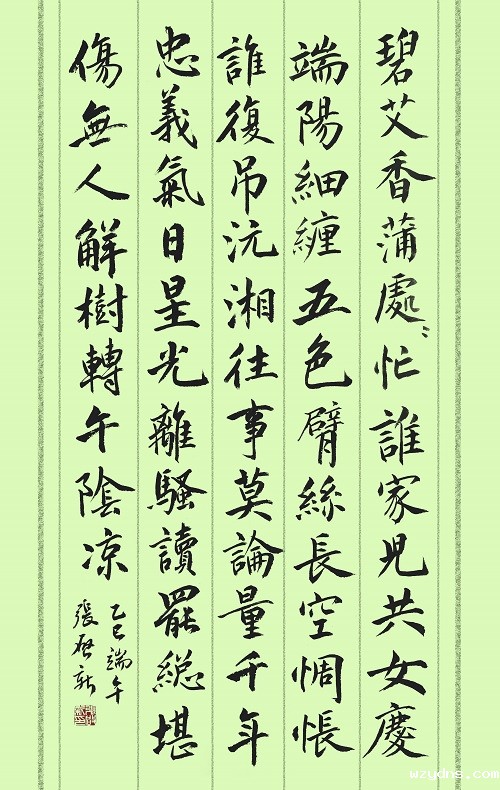 碧艾香蒲處〻忙誰家兒共女慶
端陽細纏五色臂絲長空惆悵
誰復吊沅湘往事莫論量千年
忠義氣日星光離騷讀罷總堪
傷無人解樹轉午陰凉
乙巳端午
張啟新
www.wzydns.com